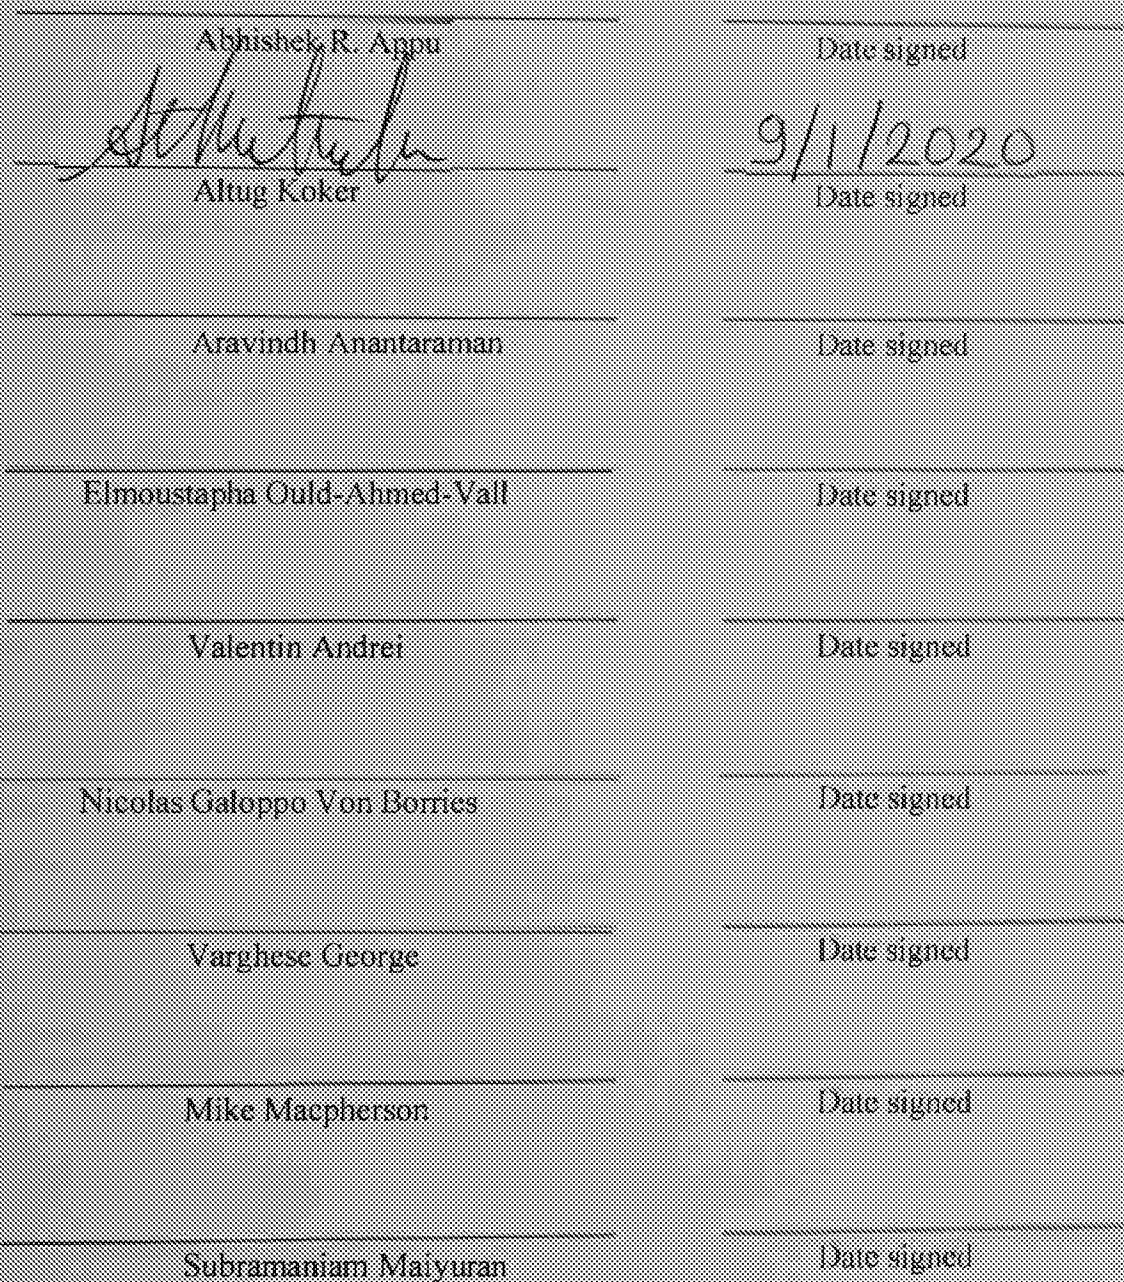 Abhishek R. Appu Date signed
9/1/2020
Altug Koker Date signed
Aravindh Anantaraman Date signed
Elmoustapha Ould-Ahmed-Vall Date signed
Valentin Andrei Date signed
Nicolas Galoppo Von Borries Date signed
Varghese George Date signed
Mike Macpherson Date signed
Subramaniam Maiyuran Date signed